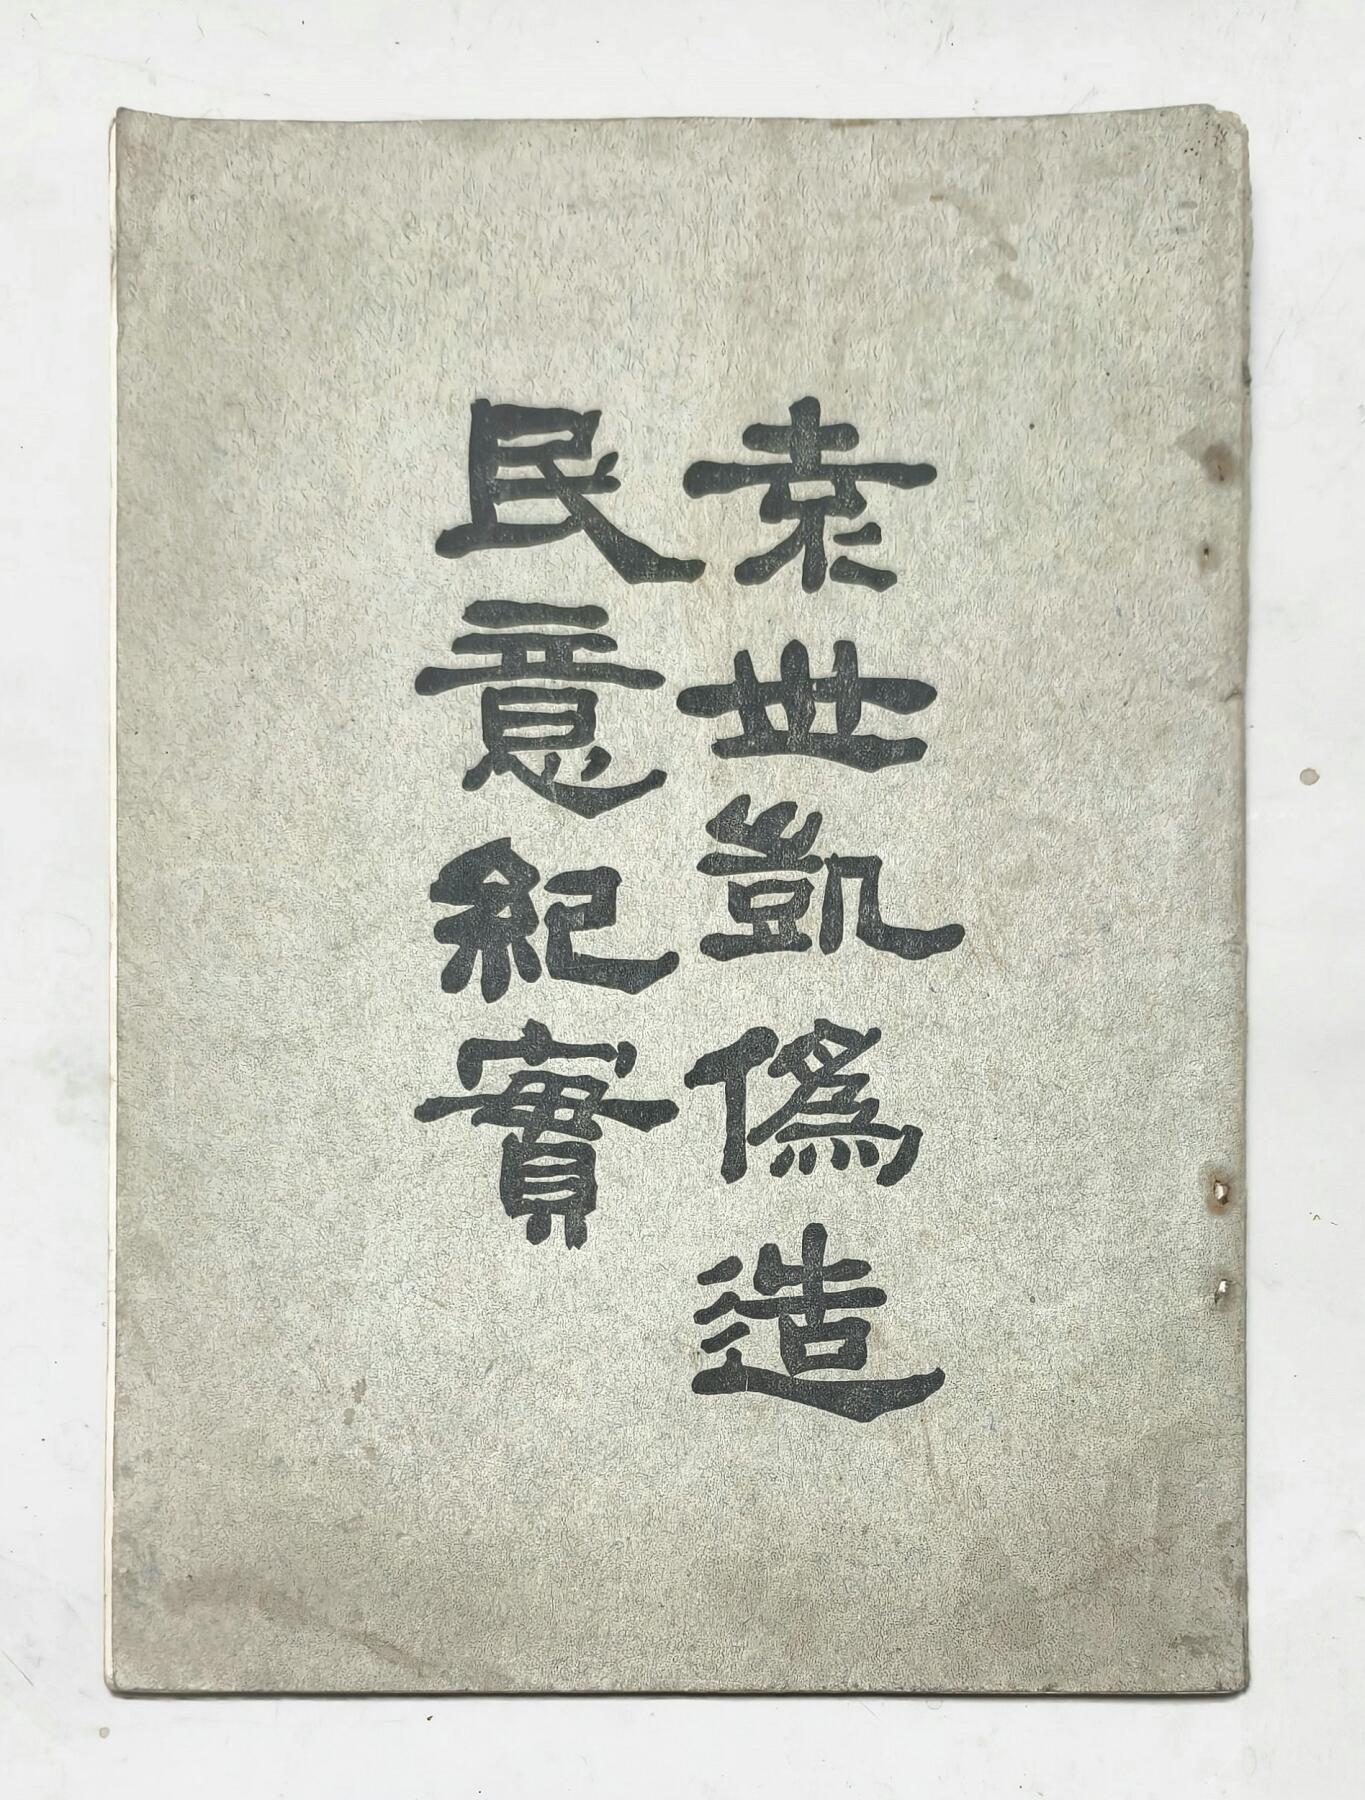 袁世凱僞造
民意紀實